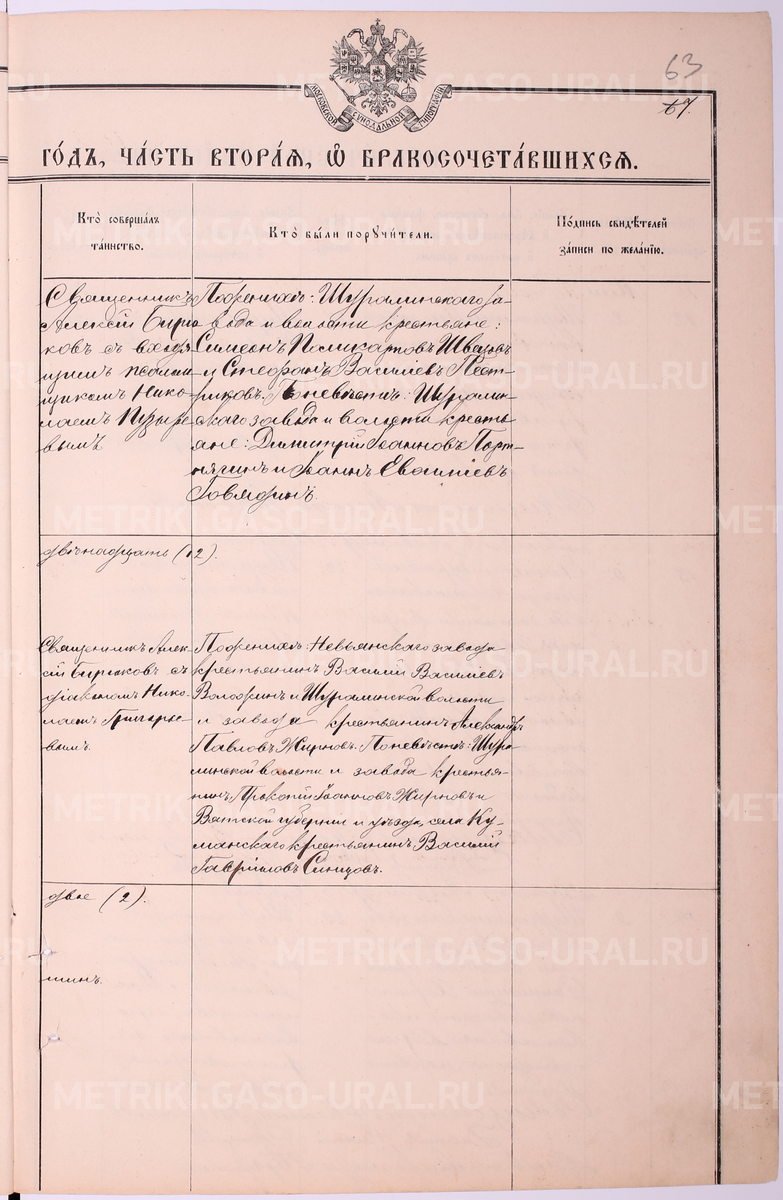 63
67.
МОСКОВСКОЙ СѴНОДАЛЬНОЙ ТИПОГРАФІИ
ГОДЪ, ЧАСТЬ ВТОРАЯ, Ѿ БРАКОСОЧЕТАВШИХСЯ.
Кто совершалъ
таинство.
Кто были поручители.
Подпись свидѣтелей
записи по желанію.
Священникъ
Алексій Бирю
ковъ съ
Нико-
лаемъ Пузыре
вымъ
По женихѣ: Шуралинскаго за-
вода и волости крестьяне:
Симеонъ Поликарповъ Швецовъ
и Стефанъ Васильевъ Пест-
риковъ. По невѣстѣ: Шуралин-
скаго завода и волости кресть-
яне: Димитрій Іоанновъ Порт-
нягинъ и Іоаннъ Евсиміевъ
Говядинъ.
двѣнадцать (12).
Священникъ Алек-
сій Бирюковъ съ
діакономъ Нико-
лаемъ Григорье-
вымъ.
По женихѣ: Невьянскаго завода
крестьянинъ Василій Васильевъ
Володинъ и Шуралинской волости
и завода крестьянинъ Александръ
Павловъ Жирновъ. По невѣстѣ: Шура-
линской волости и завода крестья-
нинъ Прокопій Іоанновъ Жирновъ и
Вятской губерніи и уѣзда, села Ку-
манскаго крестьянинъ Василій
Гавріиловъ Синцовъ.
двѣ (2).
шинъ.
METRIKI.GASO-URAL.RU